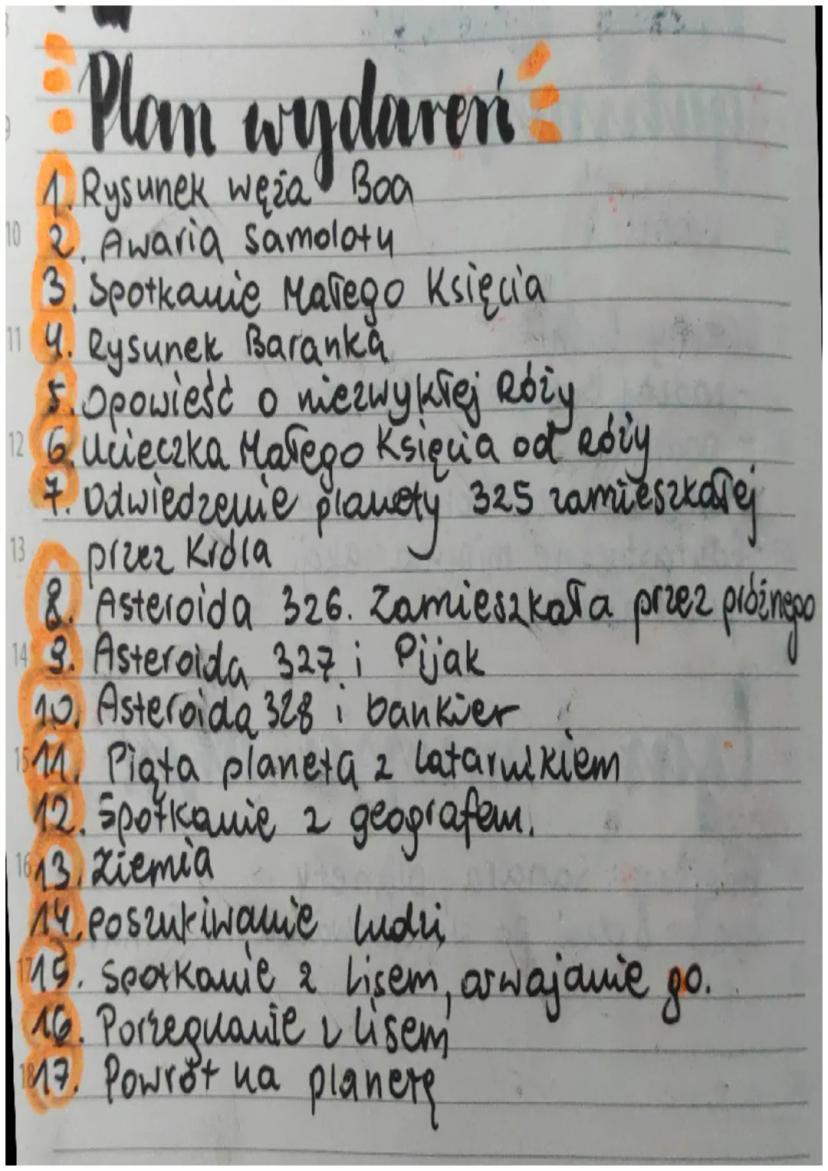 Plan wydareń
1. Rysunek węża Boa
2. Awaria samolotu
3. Spotkanie Małego Księcia
4. Rysunek Baranka
5. Opowieść o niezwykłej Róży
6. Ucieczka Małego Księcia od Róży
7. Odwiedzenie planety 325 zamieszkałej
przez Króla
8. Asteroida 326. Zamieszkała przez próżnego
9. Asteroida 327 i Pijak
10. Asteroida 328 i bankier
11. Piąta planeta z Latarnikiem
12. Spotkanie z geografem.
13. Ziemia
14. Poszukiwanie ludzi
15. Spotkanie z Lisem, oswajanie go.
16. Pożegnanie z Lisem
17. Powrót na planetę
10
11
12
13
14
15
16
17
18